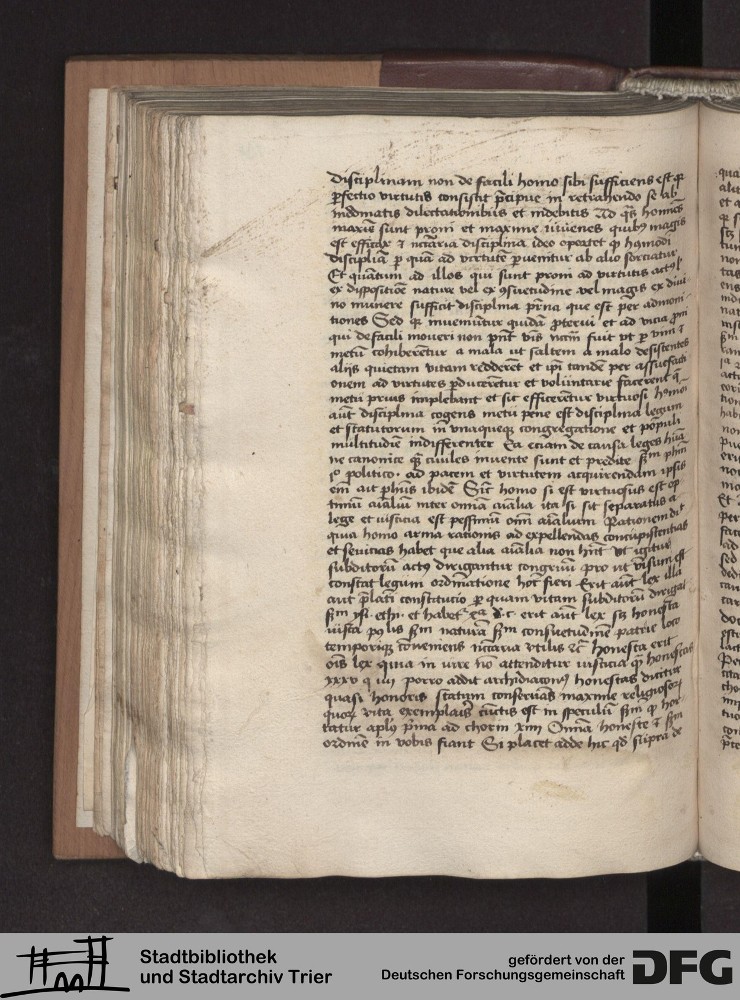 disciplinam non de facili homo sibi sufficiens est qꝫ
ꝑfectio virtutis consistit p̄cipue in retrahendo se ab
indebitis Ad q̄s homīes
maxīe sunt proni et maxime iuuenes quibꝫ magis
est efficax ⁊ nc̄c̄aria disciplina ideo oportet ꝙ hꝰmodi
discipliā ꝑ quā ad v̄tutē ꝑuenitur ab alio sorciatur
Et quātum ad illos qui sunt proni ad virtutis actꝰ
ex dispositiōe nature vel ex ꝯsuetudine vel magis ex diui
no munere sufficit disciplina pr̄na que est per admoni
tiones Sed qꝫ inueniūtur quidā ꝓterui et ad vicia ꝓni
qui de facili moueri non pn̄t v̄bis nc̄m̄ fuit vt ꝑ vim ⁊
metū cohiberētur a mala ut saltem a malo desistentes
alijs quietam vitam redderēt et ip̄i tandē per assuefacti
onem ad virtutes ꝑducerētur et voluntarie facerent q̄
metu prius implebant et sic efficerētur virtuosi hꝰmōi
aūt disciplina cogens metu pene est disciplina legum
et statutorum in vnaquaqꝫ congregatione et populi
multitudīe indifferenter Ea eciam de causa leges hūa
ne canonice qꝫ ciuiles inuente sunt et predite sc̄dm ph̄m
jº politicoꝝ ad pacem et virtutem acquirendam ipsis
em̄ ait ph̄us ibidē Sic̄ homo si est virtuosus est op
timū aīaliū inter omnia aīalia ita si sit separatus a
lege et iusticia est pessimū oīm aīalium Rationem dic̄
quia homo arma rationis ad expellendas concupiscentias
et seuicias habet que alia aīalia non hn̄t Vt igitur
subditorū actꝰ dirigantur congruū pro ut visum est
constat legum ordinatione hoc̄ fieri Erit aūt lex illa
aut p̄lati constitucio ꝑ quam vitam subditorū dirigat
sc̄dm ysi ethi et habet᷑ ea d c erit aūt lex scꝫ honesta
iusta possibilis sc̄dm naturā sc̄dm consuetudinē patrie loco
temporiqꝫ cōueniens nc̄c̄aria vtilis ⁊c̄ Honesta erit
oīs lex quia in iure nō attenditur iusticia qꝫ honestas
xxxv q iiij porro addit archidiaconꝰ honestas dicitur
quasi honoris status conseruās maxime religiosoꝝ
quoꝝ vita exemplaris cūctis est in speculū sc̄dm ꝙ hor
tatur apl̄us prima ad chorin xiiij Omnia honeste ⁊ sc̄dm
ordinē in vobis fiant Si placet adde hic qd̄ supra de
Stadtbibliothek
und Stadtarchiv Trier
gefördert von der
Deutschen Forschungsgemeinschaft
DFG